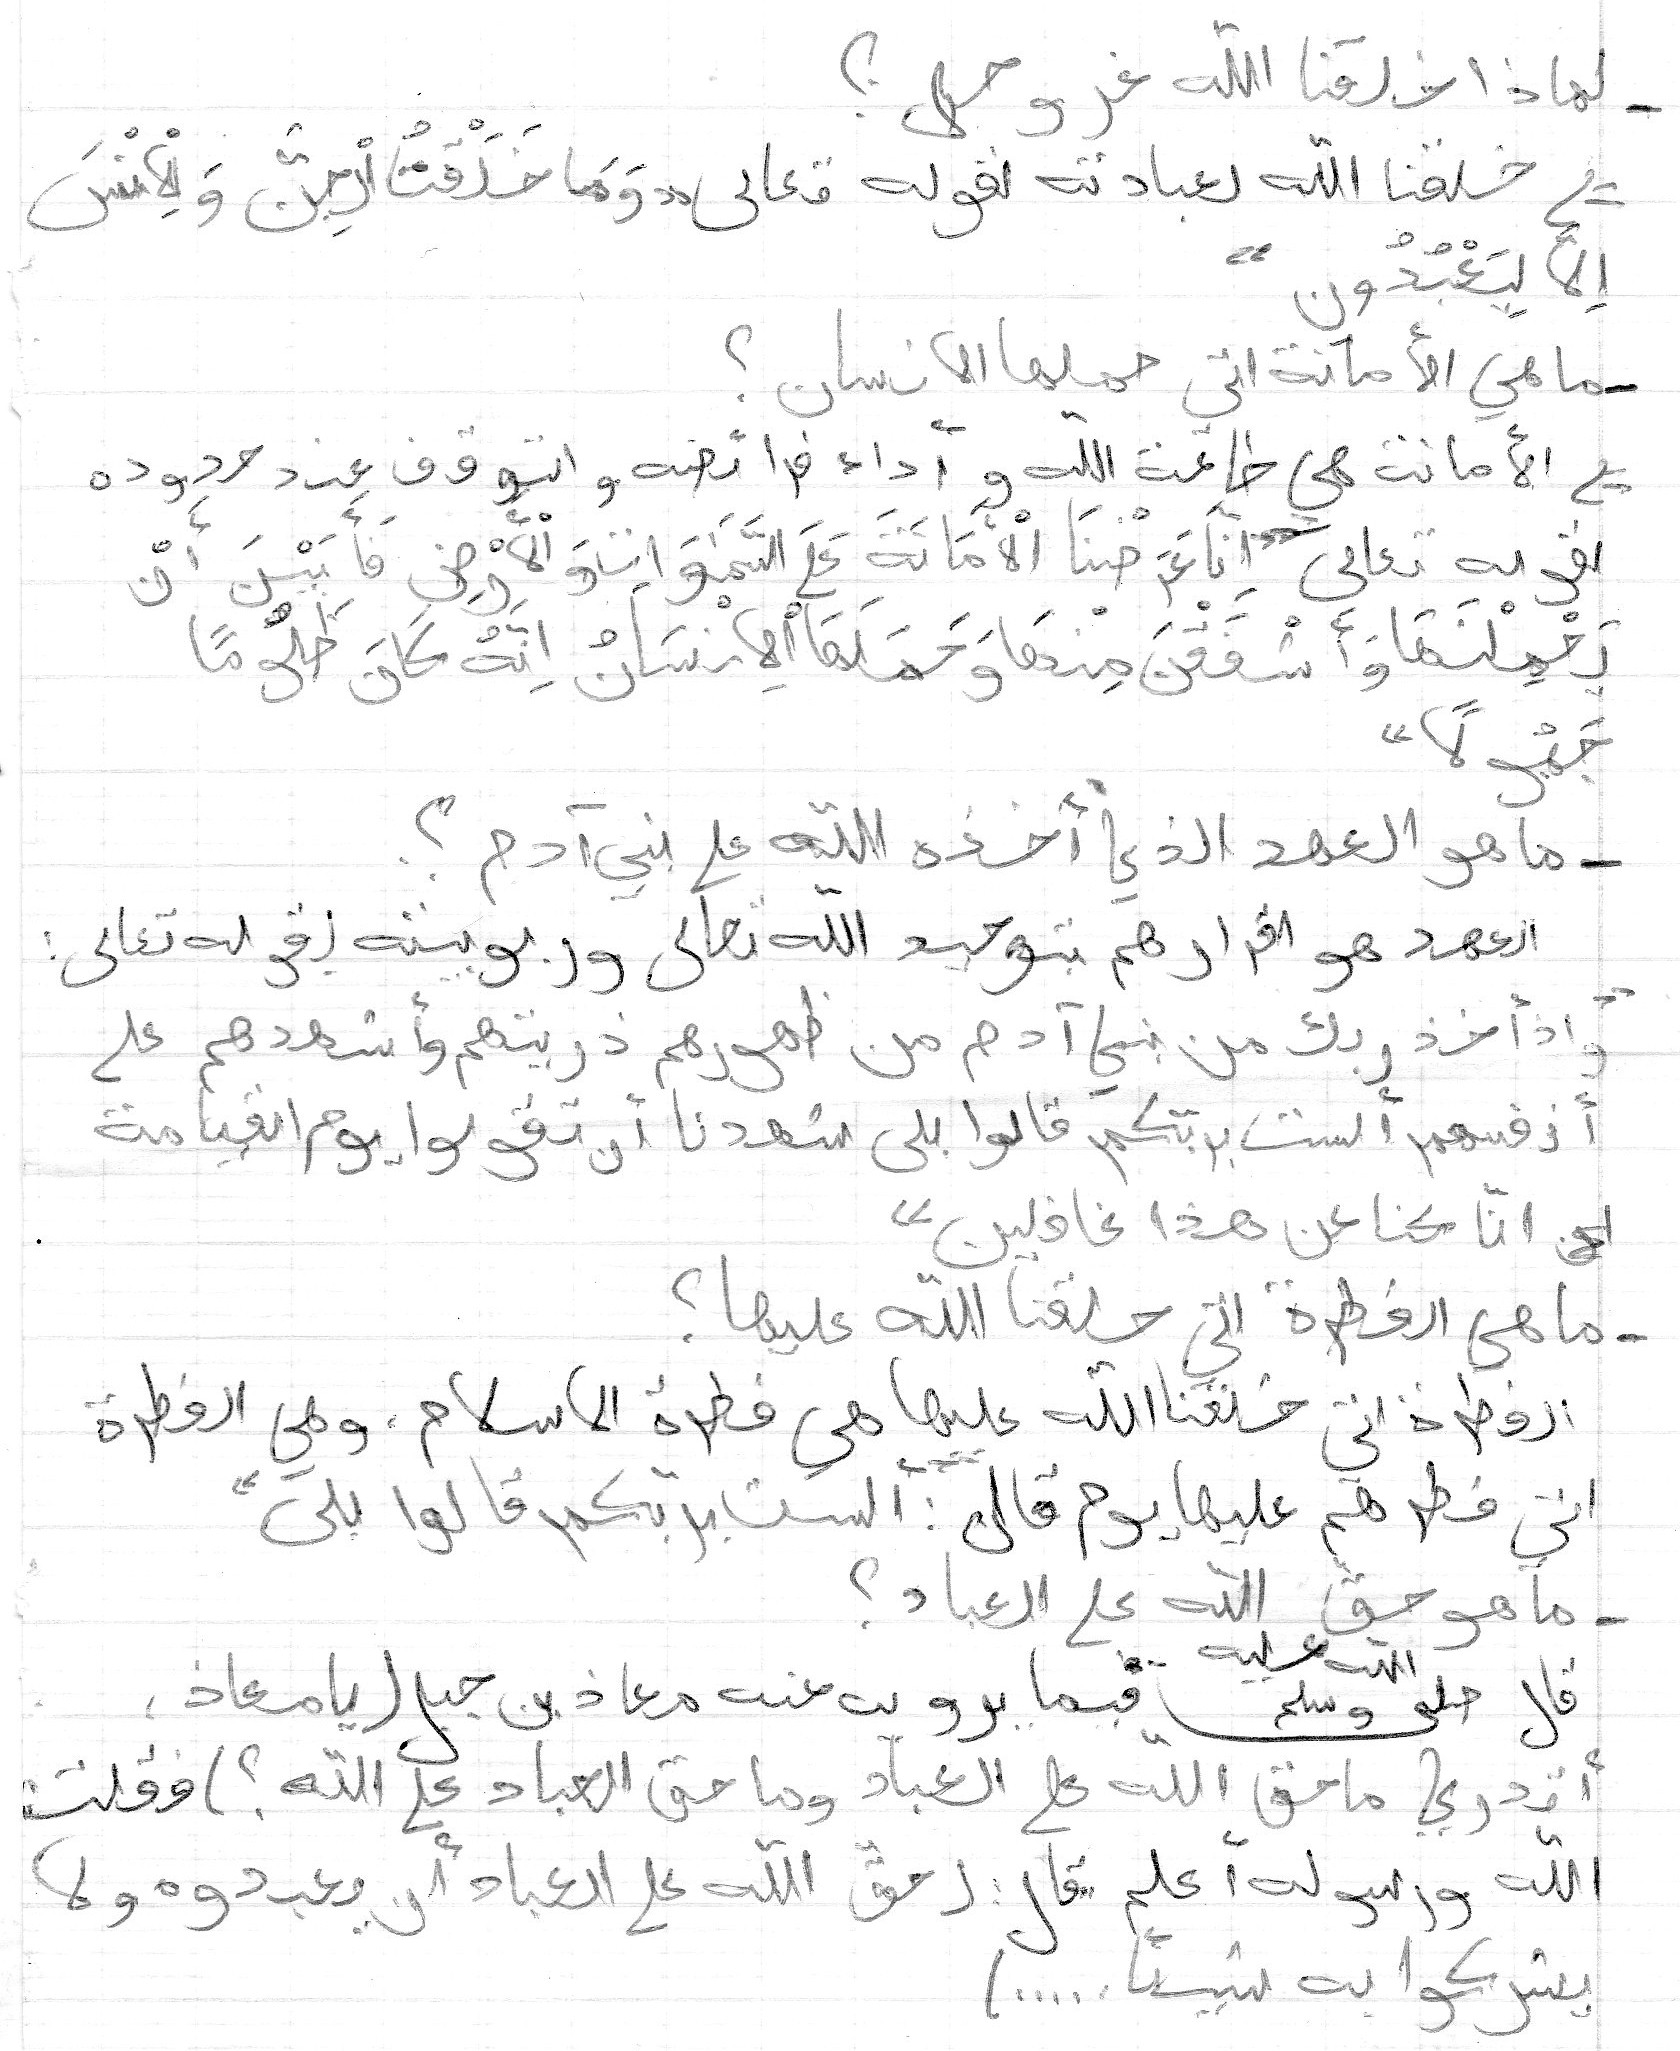 - لماذا خلقنا الله عز وجل ؟
ج خلقنا الله لعبادته لقوله تعالى "وَمَا خَلَقْتُ الْجِنَّ وَ الْإِنْسَ
إِلاَّ لِيَعْبُدُون "
- ما هي الأمانة التي حملها الانسان ؟
ج الأمانة هي طاعة الله و أداء فرائضه و التوقف عند حدوده
لقوله تعالى " اِنَّا عَرَضْنَا الْأَمَانَةَ عَلَى السَّمَوَاتِ وَ الْأَرْضِ فَأَبَيْنَ أَنْ
يَحْمِلْنَهَا وَ أَشْفَقْنَ مِنْهَا وَحَمَلَهَا الْاِنْسَانُ اِنَّهُ كَانَ ظَلُومًا
جَهُولًا "
- ما هو العهد الذي أخذه الله على بني آدم ؟
العهد هو اقرارهم بتوحيد الله تعالى وربوبيته لقوله تعالى :
" واذ أخذ ربك من بني آدم من ظهورهم ذريتهم وأشهدهم على
أنفسهم ألست بربّكم قالوا بلى شهدنا أن تقولوا يوم القيامة
انّا كنا عن هذا غافلين "
- ما هي الفطرة التي خلقنا الله عليها ؟
الفطرة التي خلقنا الله عليها هي فطرة الاسلام ، وهي الفطرة
التي فطرهم عليها يوم قال : "ألست بربّكم قالوا بلى "
- ما هو حقّ الله على العباد ؟
قال صلى الله عليه وسلم فيما يرويه عنه معاذ بن جبل ( يا معاذ ،
أتدري ما حق الله على العباد وما حق العباد على الله ؟ ) فقلت :
الله ورسوله أعلم قال : ( حقّ الله على العباد أن يعبدوه ولا
يشركوا به شيئا ..... )